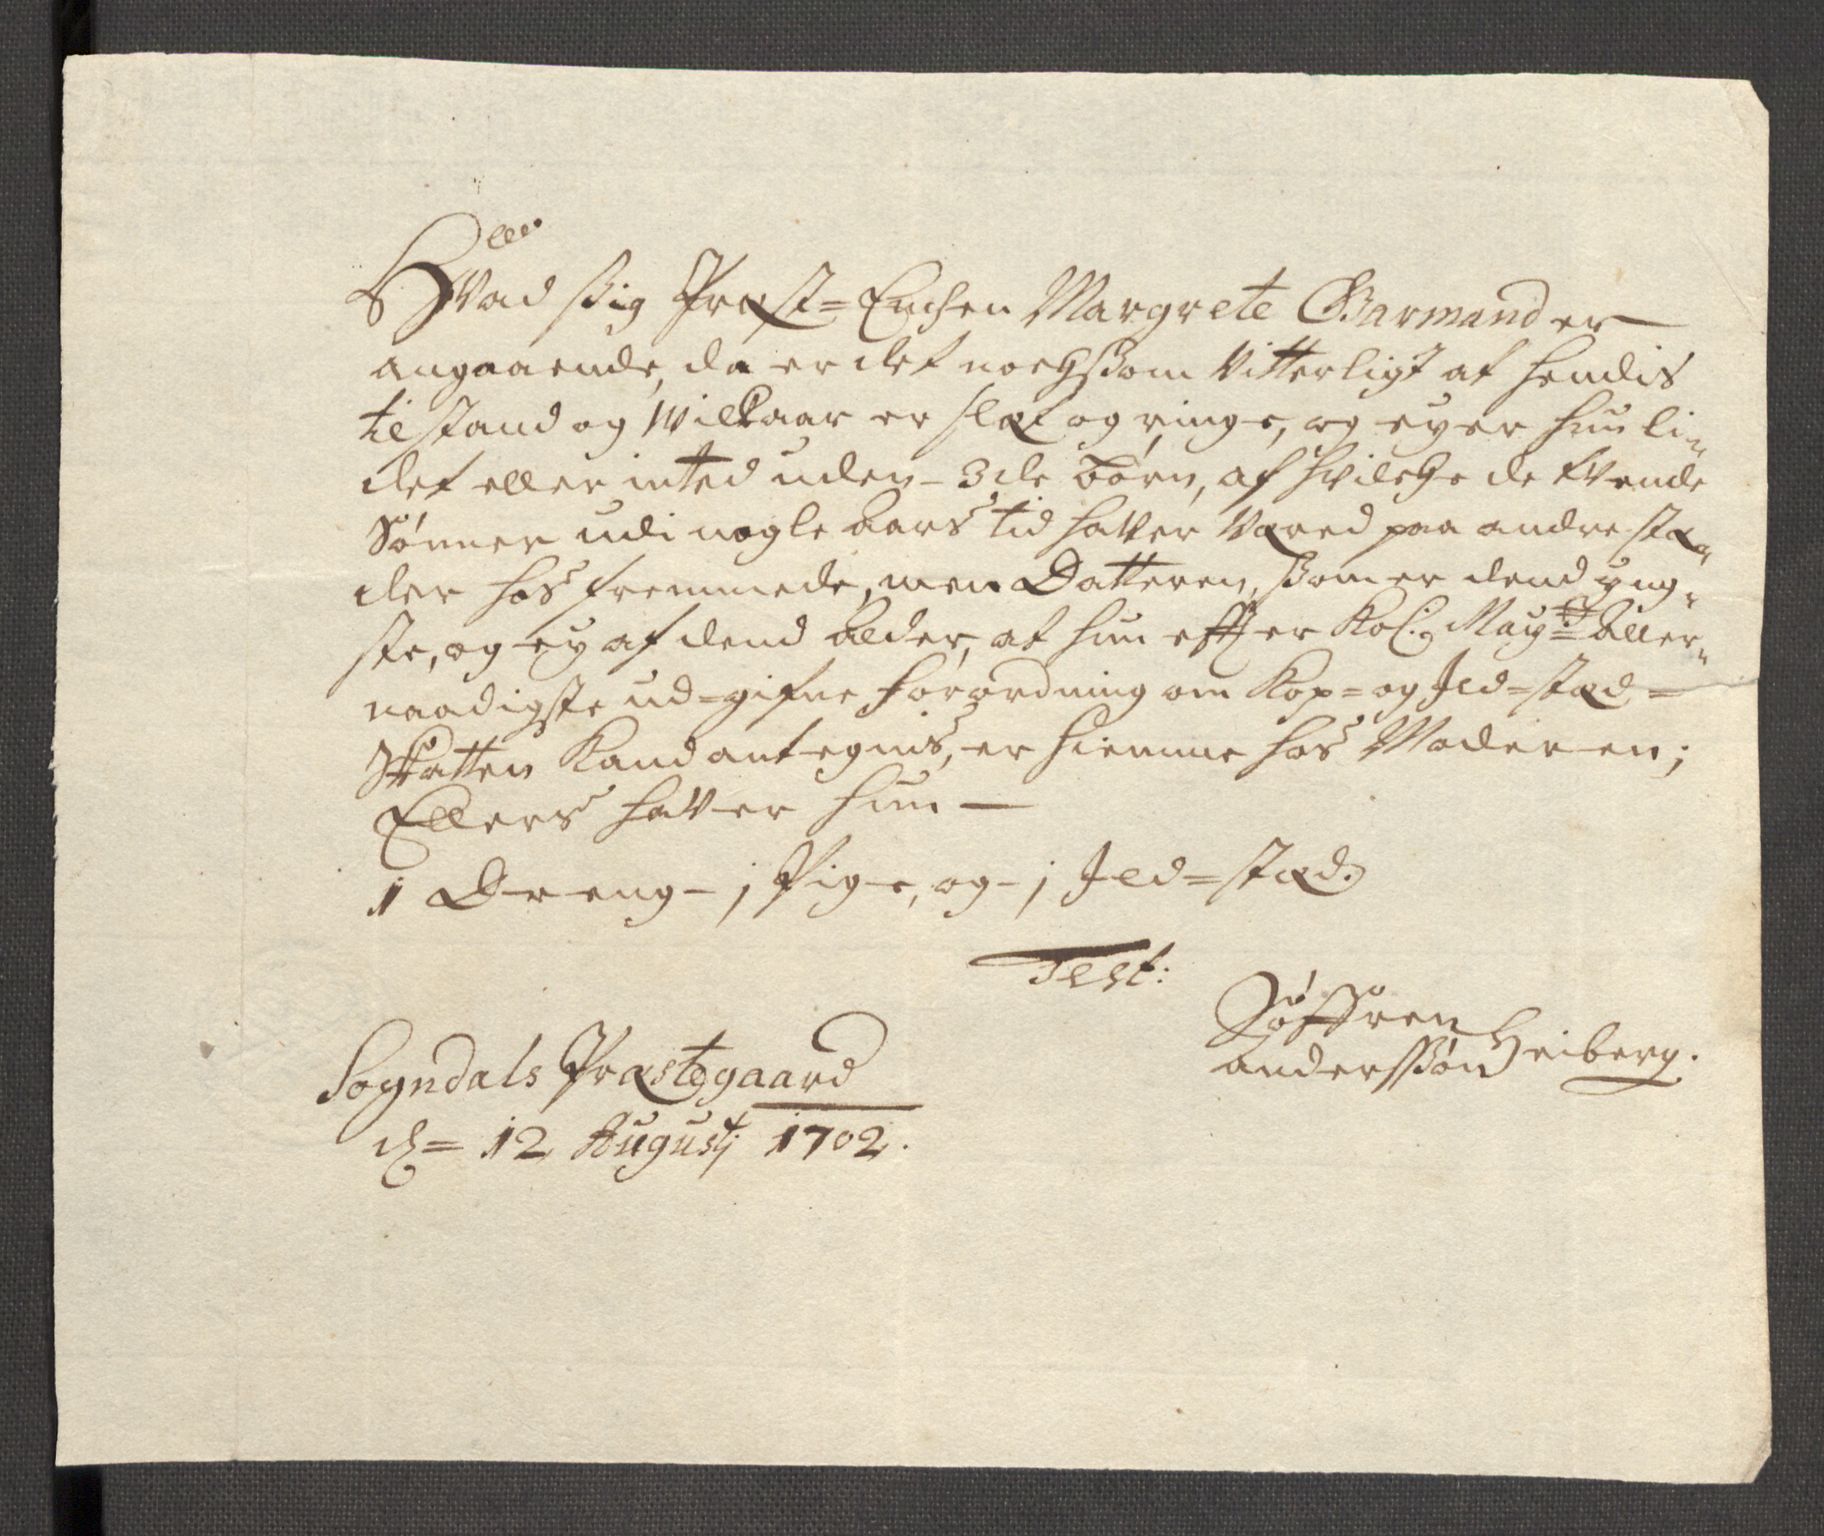 Hvad ßig Præst=Enchen Margrete Garmand er
angaaende, da er det nochßom Vitterligt at hendis
tilstand og Wilkaar er slæt og ringe, og eyer hun li=
det eller inted uden 3de børn, af hvilche de tvende
Sønner udi nogle Aars tid haver Væred paa andre stæ=
der hos fremmede, men Datteren, ßom er dend yng=
ste, og ey af dend Alder, at hun effter Kol: Mayts Aller=
naadigste ud=gifne forordning om Kop= og Ild=stæd=
Skatten Kand antegnis, er hiemme hos Moderen;
Ellers haver hun
1 Dreng - j Pige, og - j Ild=stæd.
Test:
Søffren
Anderssøn Heiberg.
Sogndals Præstegaard
d= 12 Augustj 1702.